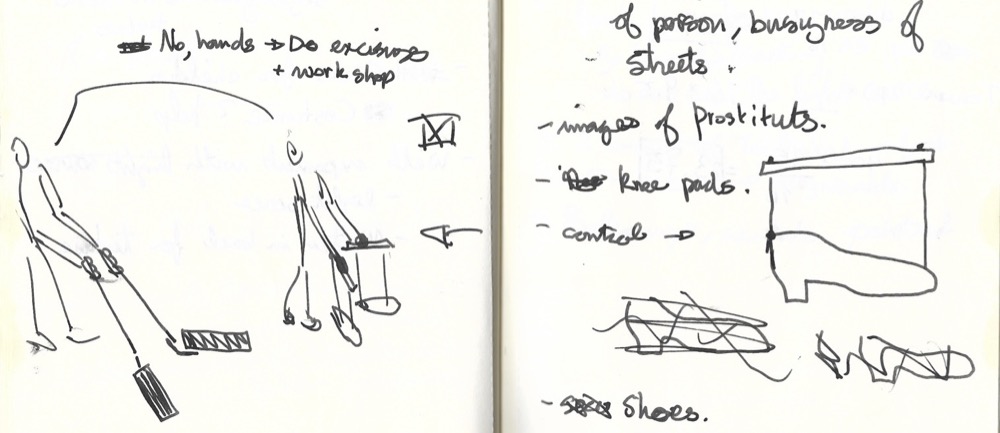 No, hands → Do excisings
+ workshop
of person, busyness of
streets.
- images of Prostituts.
- knee pads.
- control →
- Shoes.